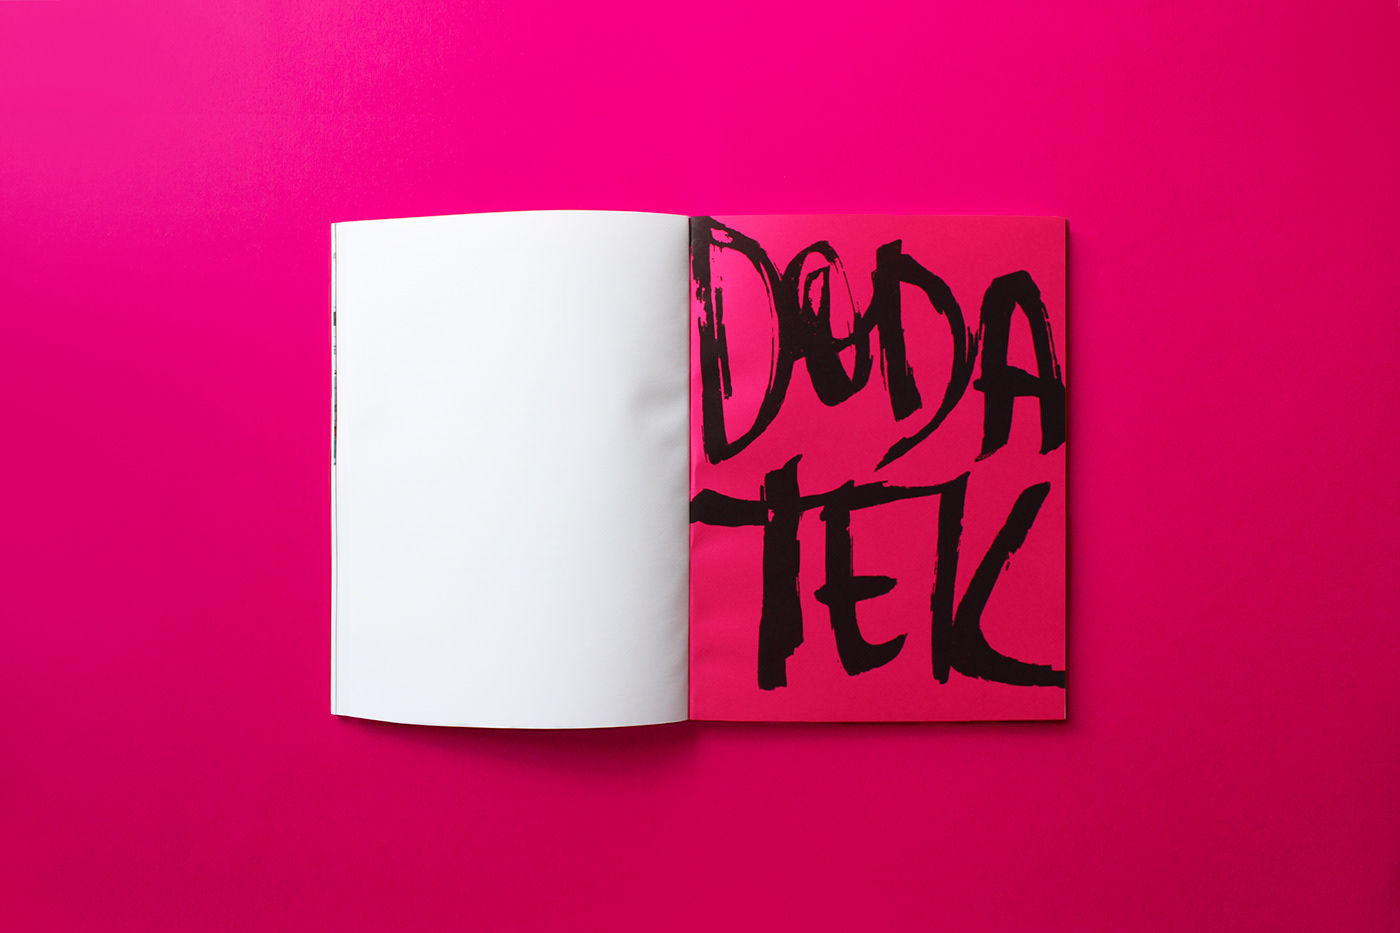 DODA
TEK